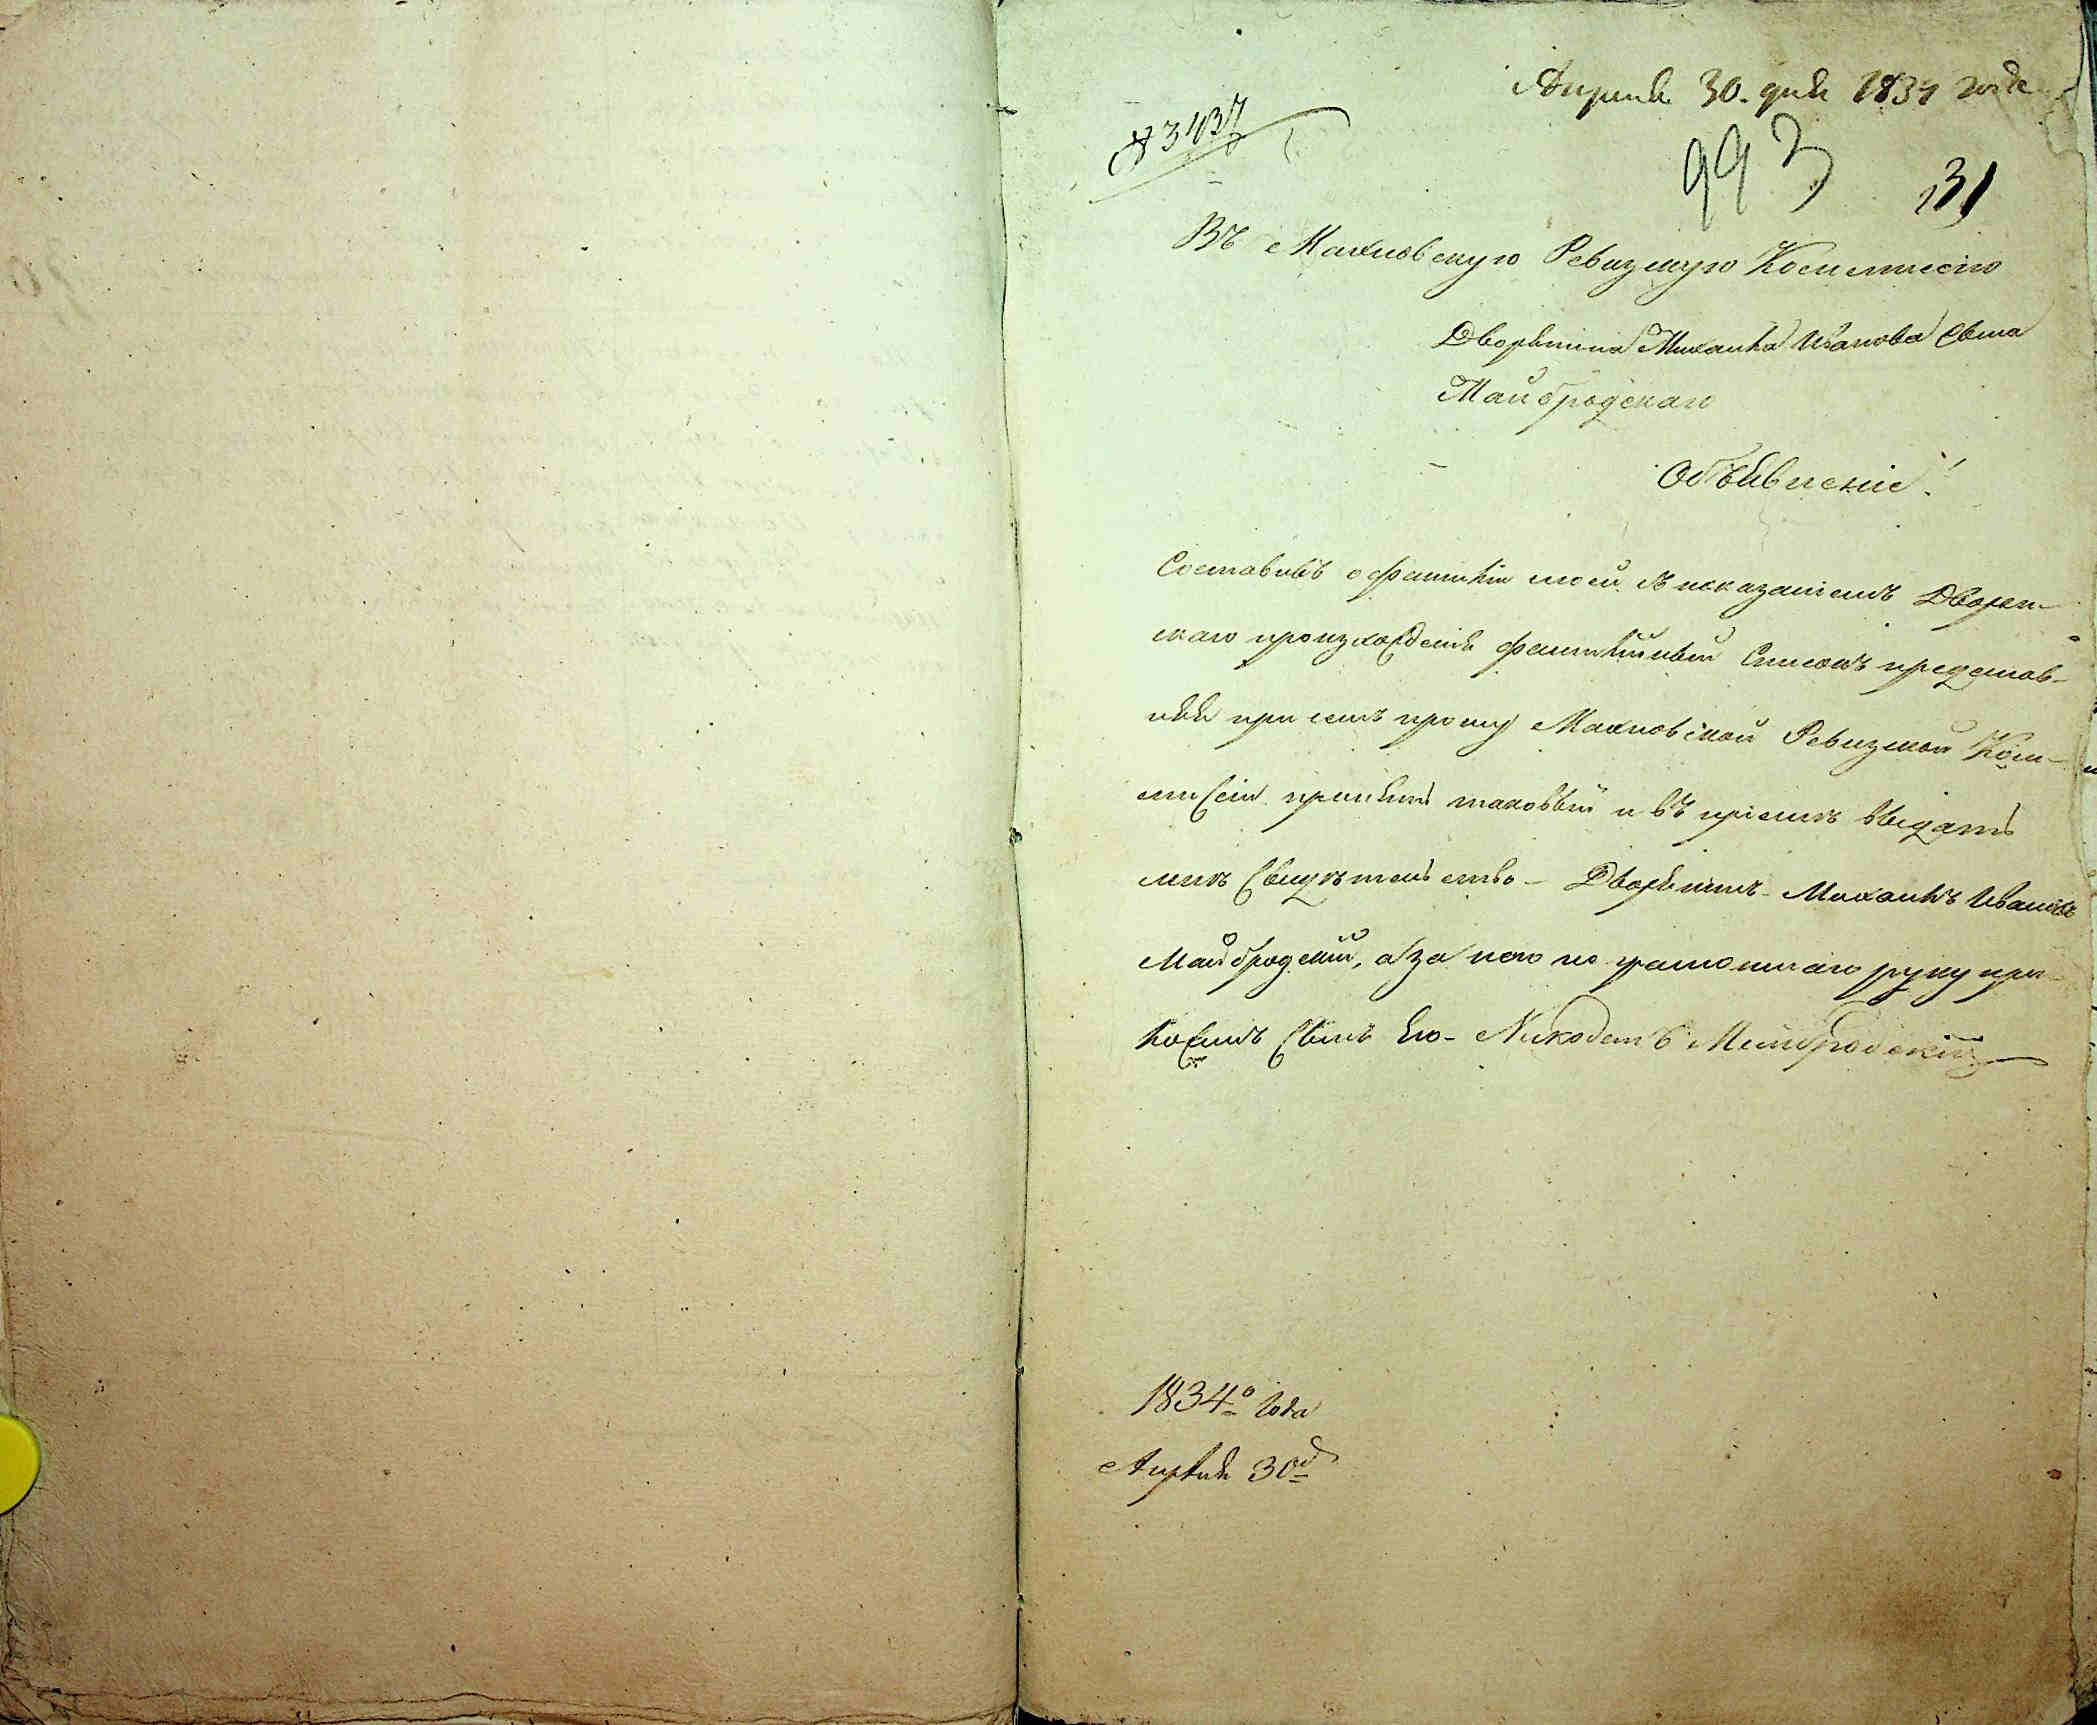 Апреля 30. дня 1834 года
№ 3437
993
31
Въ Махновскую Ревизкую Коммиссію
Дворянина Михаила Иванова Сына
Майбродскаго
Объявленіе!
Составивъ о фамиліи моей съ показаніемъ Дворян-
скаго произхожденія фамилійный Списокъ представ-
ляя при семъ прошу Махновской Ревизкой Ком-
миссіи принять таковый и въ пріемѣ выдать
мнѣ Свидѣтельство - Дворянинъ Михаилъ Ивановъ
Майбродскій, а за него не грамотнаго руку при-
ложилъ Сынъ Его - Никодемъ Майбродскій
1834º года
Апрѣля 30 д